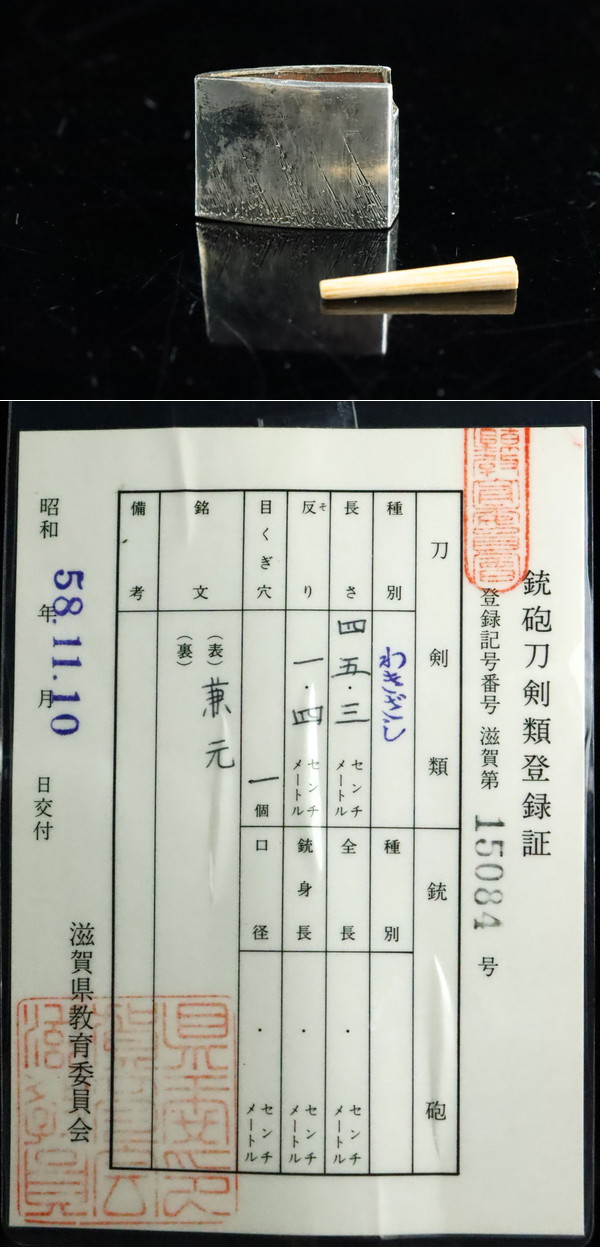 銃砲刀剣類登録証
登録記号番号 滋賀第 15084 号
刀剣類
種別 わきざし
長さ 四五・三 センチメートル
反り そ 一・四 センチメートル
目くぎ穴 一個
銘文 (表) 兼元
(裏)
備考
銃砲
種別
全長 ・ センチメートル
銃身長 ・ センチメートル
口径 ・ センチメートル
昭和 58.11.10 年 月 日交付
滋賀県教育委員会